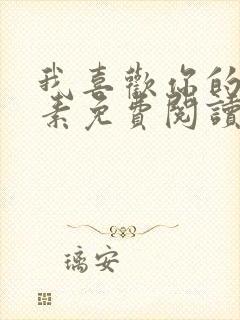 我喜歡你的
素免費閱讀
璃安